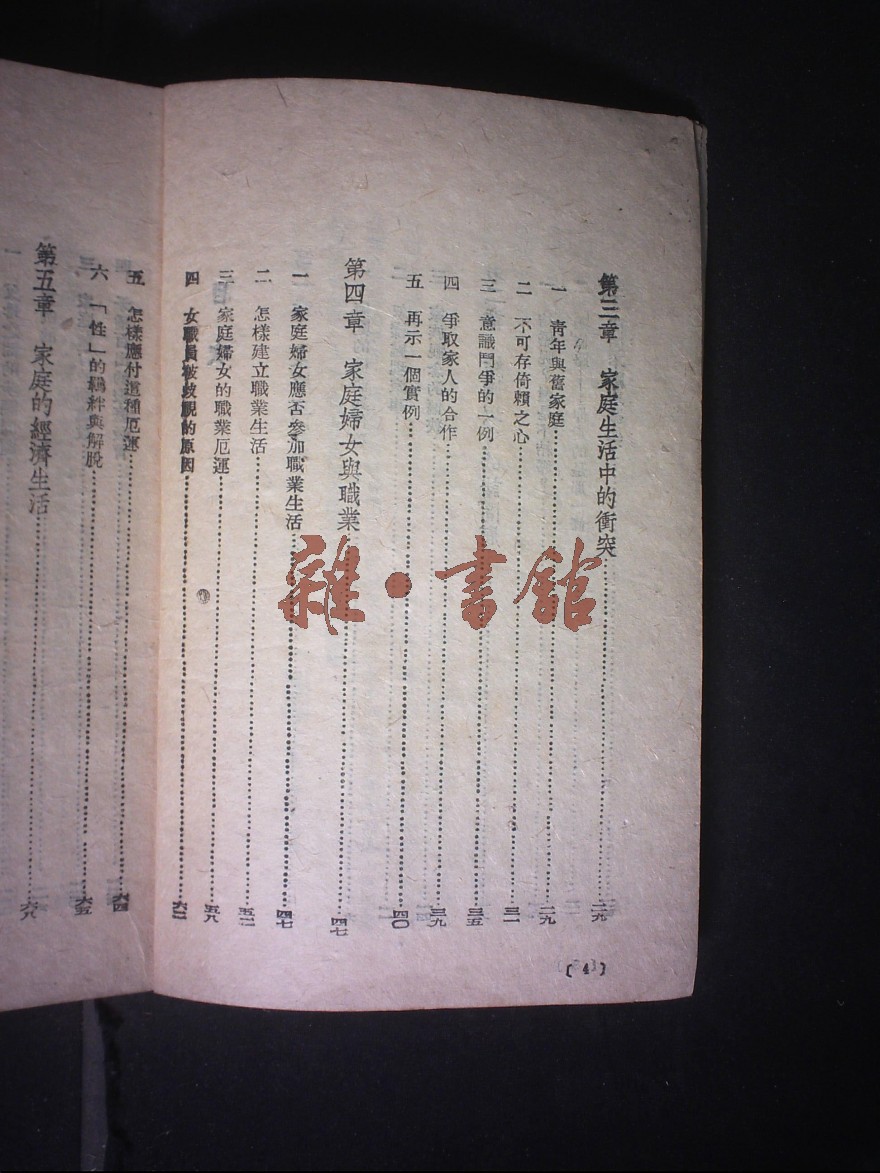 第三章　家庭生活中的衝突……二九
一　靑年與舊家庭……二九
二　不可存倚賴之心……三一
三　意識鬥爭的一例……三五
四　爭取家人的合作……三九
五　再示一個實例……四〇
第四章　家庭婦女與職業……四七
一　家庭婦女應否參加職業生活……四七
二　怎樣建立職業生活……五二
三　家庭婦女的職業厄運……五八
四　女職員被歧視的原因……六二
五　怎樣應付這種厄運……六四
六　「性」的羈絆與解脫……六五
第五章　家庭的經濟生活……六八
(4)
雜·書館